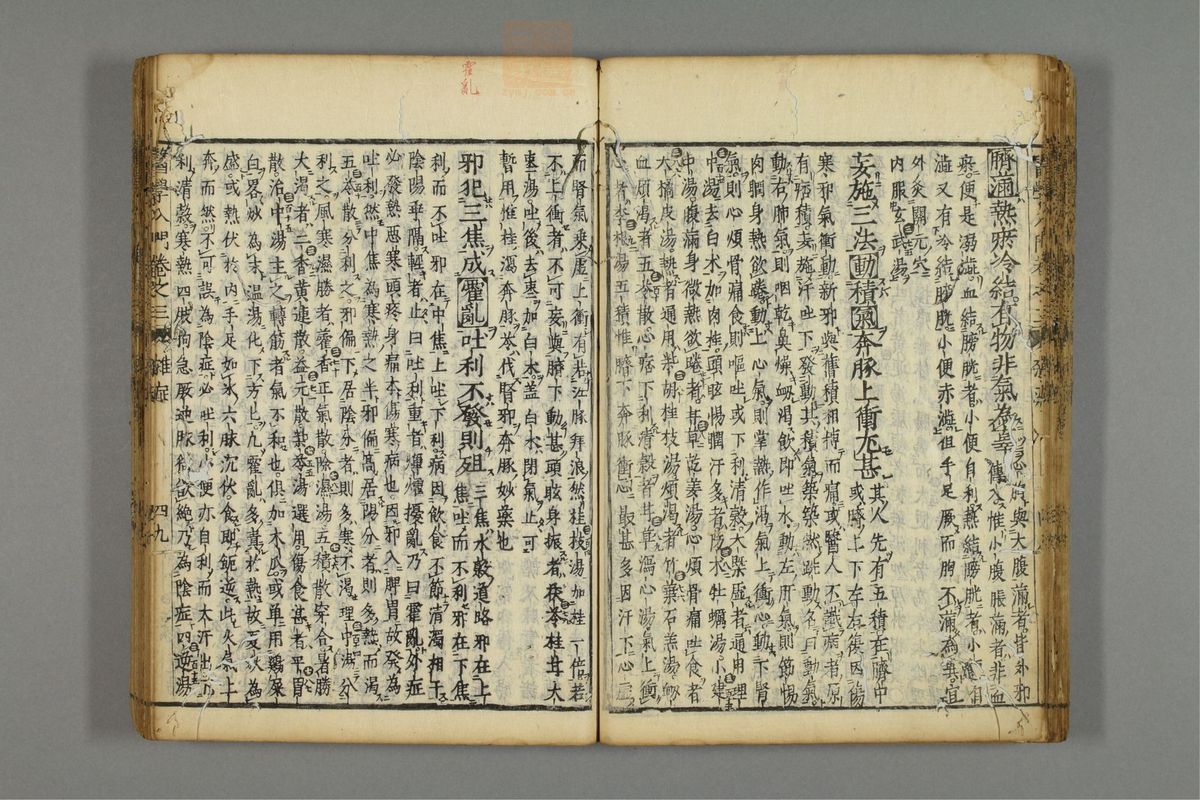 臍滿熱瘀冷結有物非氣為
瘀便是溺澁血結膀胱者小便自利熱結膀胱者小便
澁又有冷結膀胱小便赤澁但手足厥而
外灸關元穴
內服玄武湯
妄施三法動積氣奔豚上衝尤甚其人先有五積在臍中
或臍上下左右復因傷
寒邪氣衝動新邪與舊積相搏而痛或醫人不識病者原
有痞積妄施汗吐下發動其積氣築築然跳動名曰動氣
動右肺氣則咽乾鼻燥
肉瞤身熱欲踡動上心氣則掌熱作渴氣上衝心動下腎
氣則心煩骨痛食則嘔吐或下利清穀大
中湯去白朮加肉桂頭眩惕瞤汗多者防朮牡蠣湯小建
中湯腹滿身微熱欲踡者甘草乾姜湯心煩骨痛吐食者
大橘皮湯熱者通用柴胡桂枝湯煩渴者竹葉石羔湯衂
血煩渴者五苓散心痞下利清穀者甘草瀉心湯氣上衝
李根湯五積惟臍下奔豚衝心最甚多因汗下心虛
而腎氣乘虛上衝有若江豚拜浪然桂枝湯加桂一倍若
不上衝者不可妄與臍下動甚頭眩身振者茯苓桂甘大
棗湯吐後去棗加白朮蓋白朮閉氣止可
暫用惟桂瀉奔豚苓伐腎邪奔豚妙藥也
邪犯三焦成霍亂吐利不發則殂三焦水穀道路邪在上
焦吐而不利邪在下焦
利而不吐邪在中焦上吐下利病因飲食不節清濁相干
陰陽乖隔輕者止曰吐利重者揮擾亂乃曰霍亂外症
必發熱惡寒頭疼身痛本傷寒病也因邪入脾胃故發為
吐利然中焦為寒熱之半邪偏高居陽分者則多熱而渴
五苓散分利之邪偏下居陰分者則多寒不渴理中湯分
利之風寒濕勝者藿香正氣散除濕湯五積散
大渴者二香黃連散益元散
主之轉筋者氣不和也俱加木瓜或单用鷄屎
白畧炒為末溫湯化下方寸匕霍亂多責於熱故夏秋為
盛或熱伏於內手足如冰六脉沉伏食即
奔而然不可誤為陰症必吐利小便亦自利而大汗出下
利清穀寒熱四肢拘急厥逆脉微欲絕乃為陰症四逆湯
醫學入門卷之三
雜症
四九
霍亂